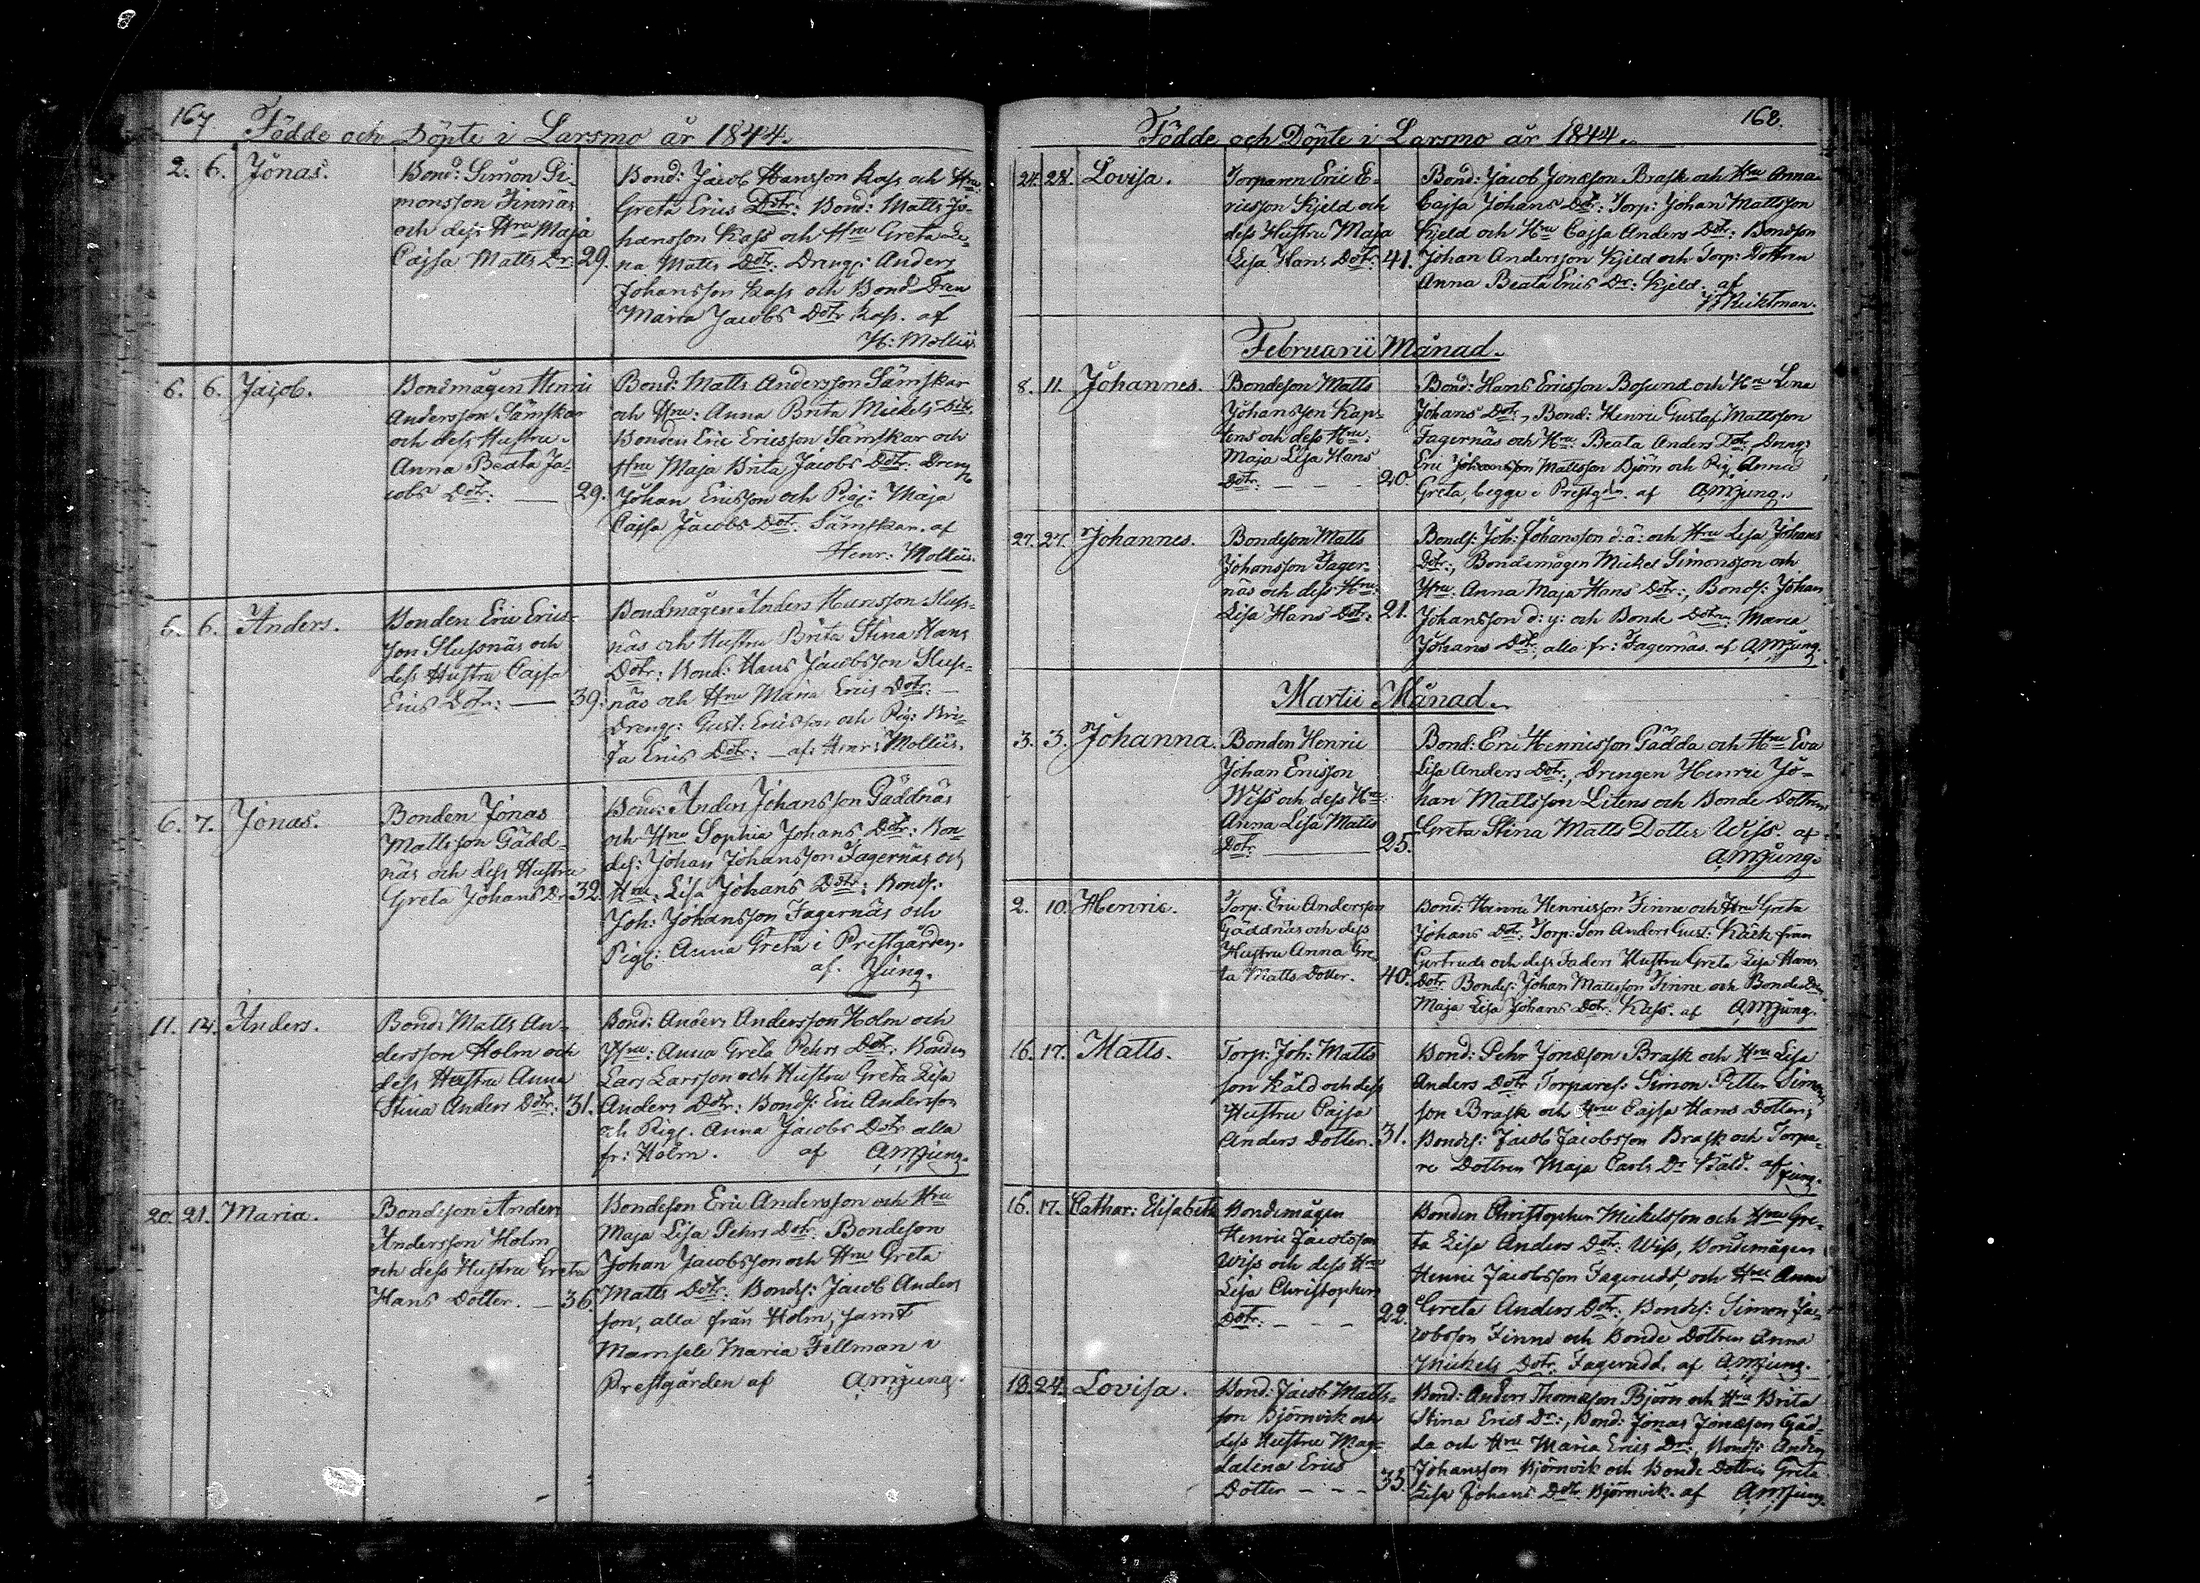 167. Födde och Döpte i Larsmo år 1844.
2. 6. Jonas.
Bond: Simon Si-
monsson Finnäs
och dess Hru Maja
Cajsa Matts Dr. 29.
Bond: Jacob Hansson Kass och Hru
Greta Erics Dotr: Bond: Matts Jo-
hansson Kass och Hru Greta Le-
na Matts Dotr: Drengs: Anders
Johansson Kass och Bond Dren
Maria Jacobs Dotr Kass. af
H: Molliis.
6. 6. Jacob.
Bondmågen Henric
Andersson Sämskar
och dess Hustru
Anna Beata Ja-
cobs Dotr: — 29.
Bond: Matts Andersson Sämskar
och Hru: Anna Brita Mickels Dotr.
Bonden Eric Ericsson Sämskar och
Hru Maja Brita Jacobs Dotr: Dreng
Johan Ericsson och Pig: Maja
Cajsa Jacobs Dotr. Sämskar. af
Henr: Mollüs.
6. 6. Anders.
Bonden Eric Erics-
son Slussnäs och
dess Hustru Cajsa
Erics Dotr: — 39.
Bondmågen Anders Hansson Sluss-
näs och Hustru Brita Stina Hans
Dotr: Bond: Hans Jacobsson Sluss-
näs och Hru Maria Erics Dotr: —
Drengs: Gust: Ericsson och Pig: Bri-
ta Erics Dotr: — af Henr: Mollüs.
6. 7. Jonas.
Bonden Jonas
Mattsson Gädd-
näs och dess Hustru
Greta Johans Dr 32.
Bond: Anders Johansson Gäddnäs
och Hru Sophia Johans Dotr: Bon-
des: Johan Johansson Fagernäs och
Hru: Lisa Johans Dotr: Bonds:
Joh: Johansson Fagernäs och
Pig: Anna Greta i Prestgården.
af. Jung.
11. 14. Anders.
Bond: Matts An-
dersson Holm och
dess Hustru Anna
Stina Anders Dotr: 31.
Bond: Anders Andersson Holm och
Hru: Anna Greta Pehrs Dotr: Bonden
Lars Larsson och Hustru Greta Lisa
Anders Dotr: Bonds: Eric Andersson
och Pig. Anna Jacobs Dotr alla
fr: Holm. af AMjung.
20. 21. Maria.
Bondeson Anders
Andersson Holm
och dess Hustru Greta
Hans Dotter. — 36.
Bondeson Eric Andersson och Hru
Maja Lisa Pehrs Dotr. Bondeson
Johan Jacobsson och Hru Greta
Matts Dotr. Bonds: Jacob Anders
son, alla från Holm, samt
Mamsele Maria Fellman i
Prestgården af AMjung.
Födde och Döpte i Larsmo år 1844. 168.
24. 28. Lovisa.
Torparn Eric E-
ricsson Kjeld och
dess Hustru Maja
Lisa Hans Dotr: 41.
Bond: Jacob Jonæson Brask och Hru Anna
Cajsa Johans Dtr: Torp: Johan Mattsson
Kjeld och Hru Cajsa Anders Dotr: Bondson
Johan Andersson Kjeld och Torp: Dottren
Anna Beata Erics Dr: Kjeld. af
Februarii Månad.
8. 11. Johannes.
Bondeson Matts
Johansson Kap-
tens och dess Hru:
Maja Lisa Hans
Dotr: — — — 20.
Bond: Hans Ericsson Bosund och Hru Lena
Johans Dotr:, Bond: Henric Gustaf Mattsson
Fagernäs och Hru: Beata Anders Dotr, Dreng:
Eric Johansson Mattsson Björn och Pig. Anna
Greta, begge i Prestgdn. af AMjung.
27. 27. Johannes.
Bondeson Matts
Johansson Fager-
näs och dess Hru:
Lisa Hans Dotr: 21.
Bonds: Joh: Johansson d: ä: och Hru Lisa Johans
Dotr:, Bondemågen Mickel Simonsson och
Hru: Anna Maja Hans Dotr:, Bonds: Johan
Johansson d: y: och Bonde Dotren: Maria
Johans Dotr:, alla fr: Fagernäs. af AMjung.
Martii Månad.
3. 3. Johanna.
Bonden Henric
Johan Ericsson
Wiss och dess Hru
Anna Lisa Matts
Dotr: ——— 25.
Bond: Eric Henricsson Gädda och Hru Eva
Lisa Anders Dotr:, Drengen Henric Jo-
han Mattsson Litens och Bonde Dottren
Greta Stina Matts Dotter Wiss. af
AMjung.
2. 10. Henric.
Torp: Eric Andersson
Gäddnäs och dess
Hustru Anna Gre-
ta Matts Dotter. 40.
Bond: Henric Henricsson Finne och Hru Greta
Johans Dotr: Torp: Son Anders Gust: Käck från
Gertruds och dess Faders Hustru Greta Lisa Hans
Dotr. Bondes: Johan Mattsson Finne och Bonde Dtr.
Maja Lisa Johans Dotr: Kass. af AMjung.
16. 17. Matts.
Torp: Joh: Matts
son Käld och dess
Hustru Cajsa
Anders Dotter. 31.
Bond: Pehr Jonæson Brask och Hru Lisa
Anders Dotr Torpares: Simon Petter Simons
son Brask och Hru Cajsa Hans Dotter;
Bonds: Jacob Jacobsson Brask och Torpa-
re Dottren Maja Carls Dr Käld. af
jung.
16. 17. Cathar: Elisabeth
Bondemågen
Henric Jacobsson
Wiss och dess Hru
Lisa Christophers
Dotr: — — — 22.
Bonden Christopher Mickelsson och Hru Gre-
ta Lisa Anders Dotr: Wiss, Bondemågen
Henric Jacobsson Fagerudd, och Hru Anna
Greta Anders Dotr:, Bonds: Simon Jac-
cobsson Finne och Bonde Dottren Anna
Mickels Dotr. Fagerudd. af AMjung.
18. 24. Lovisa.
Bond: Jacob Matts-
son Björnvik och
dess Hustru Mag-
dalena Erics
Dotter — — — 35.
Bond: Anders Thomæson Björn och Hru Brita
Stina Erics Dr:, Bond: Jonas Jonæson Gäd-
da och Hru Maria Erics Dr:, Bonds: Anders
Johansson Björnvik och Bonde Dottren Greta
Lisa Johans Dotr. Björnvik. af AMjung.